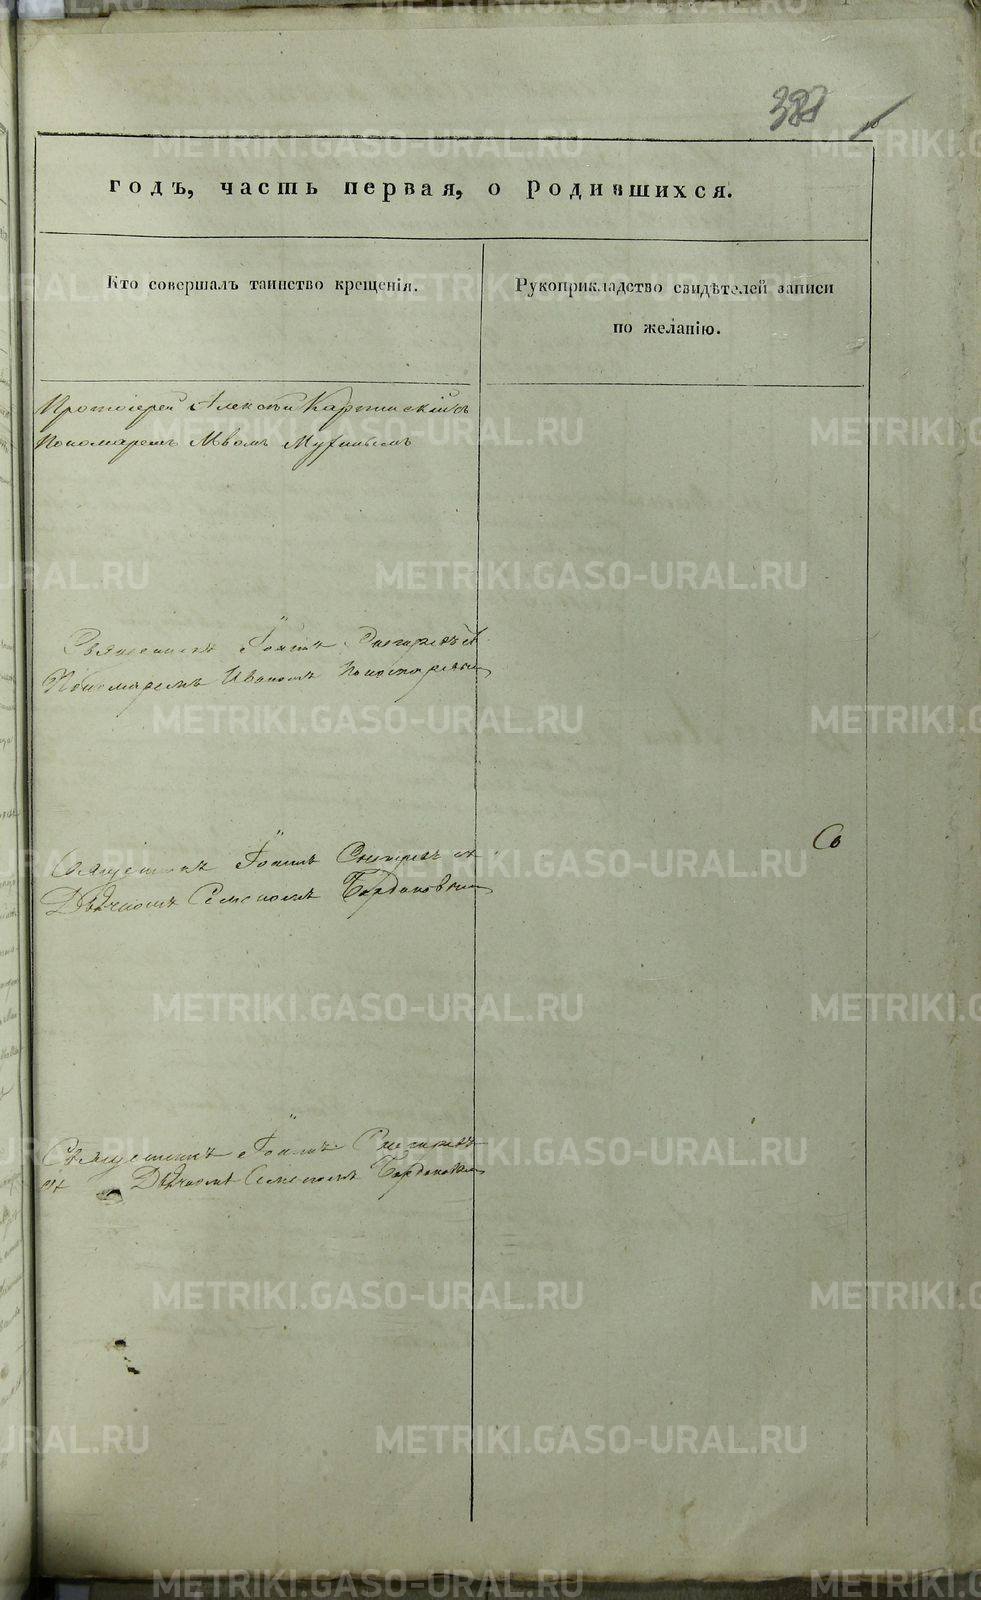 METRIKI.GASO-URAL.RU
годъ, часть первая, о родившихся.
Кто совершалъ таинство крещенія.
Рукоприкладство свидѣтелей записи
по желанію.
Протоіерей Алексѣй Карпинскій съ
Пономаремъ Львомъ Мухинымъ
Священникъ Іоаннъ съ
Пономаремъ Иваномъ Пономаревым
Священникъ Іоаннъ съ
Дьячкомъ Семеномъ Бардаковым
Со
Священникъ Іоаннъ
съ Дьячкомъ Семеномъ Бардаковым